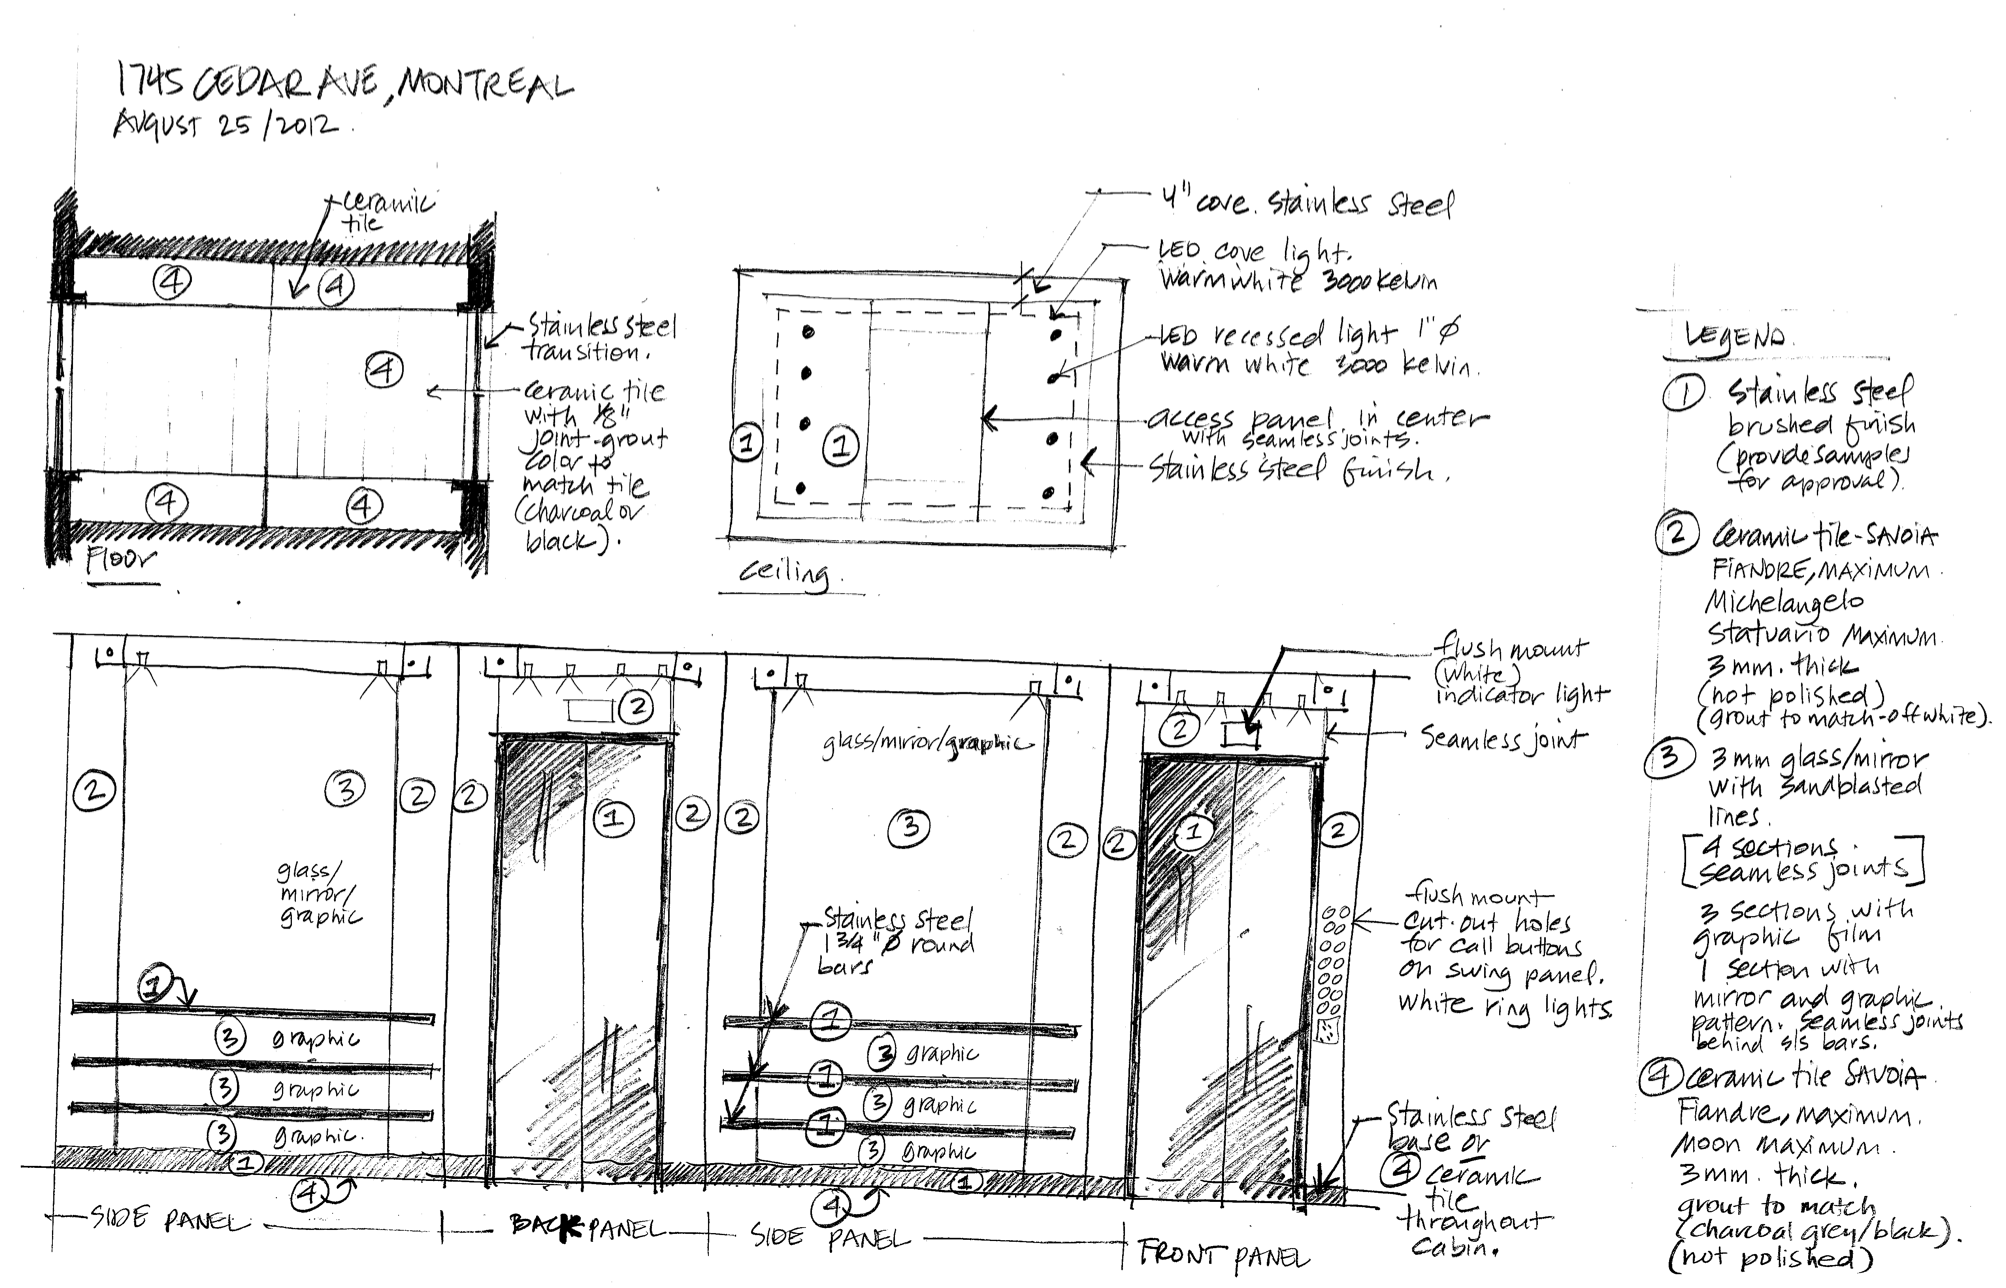 1745 CEDAR AVE, MONTREAL
AUGUST 25/2012.
ceramic
tile
4
4
4
4
4
Stainless steel
transition.
ceramic tile
with 1/8"
joint-grout
color to
match tile
(charcoal or
black).
Floor
4" cove. Stainless Steel
LED cove light.
Warm white 3000 Kelvin
LED recessed light 1" Ø
Warm white 3000 Kelvin.
access panel in center
with seamless joints.
Stainless steel finish.
1
1
ceiling.
LEGEND.
1 Stainless steel
brushed finish
(provide samples
for approval).
2 Ceramic tile-SAVOIA
FIANDRE, MAXIMUM.
Michelangelo
Statuario MAXIMUM.
3 mm. thick
(not polished)
(grout to match-off white).
3 3 mm glass/mirror
with sandblasted
lines.
[4 sections.
seamless joints]
3 sections with
graphic film
1 section with
mirror and graphic
pattern. Seamless joints
behind s/s bars.
4 ceramic tile SAVOIA.
Fiandre, maximum.
Moon maximum.
3 mm. thick.
grout to match
(charcoal grey/black).
(not polished)
flush mount
(white)
indicator light
Seamless joint
2
2
glass/mirror/graphic
2
3
2
2
1
2
2
3
2
2
1
2
glass/
mirror/
graphic
Stainless steel
1 3/4" Ø round
bars
flush mount
cut-out holes
for call buttons
on swing panel.
White ring lights
1
3 graphic
3 graphic
3 graphic.
1
4
1
3 graphic
1
3 graphic
1
3 graphic
1
4
Stainless steel
base or
4 ceramic
tile
throughout
cabin.
SIDE PANEL
BACK PANEL
SIDE PANEL
FRONT PANEL